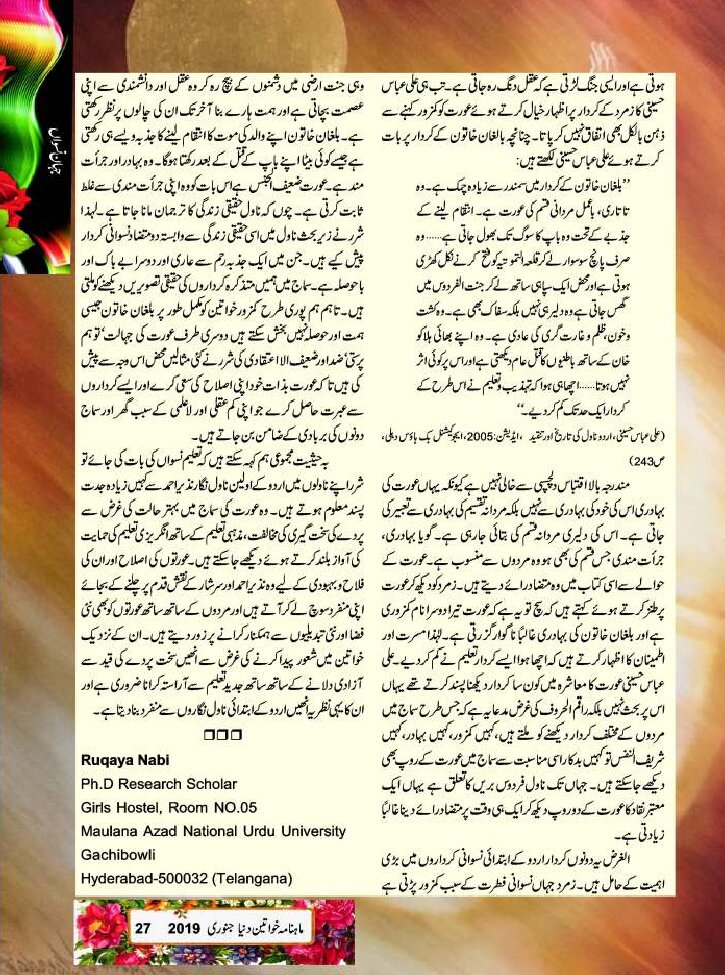 جہان نسواں
ہوتی ہے اور ایسی جنگ لڑتی ہے کہ عقل دنگ رہ جاتی ہے۔ تب ہی علی عباس
حسینی کا زمرد کے کردار پر اظہار خیال کرتے ہوئے عورت کو کمزور کہنے سے
ذہن بالکل بھی اتفاق نہیں کر پاتا۔ چنانچہ بالغان خاتون کے کردار پر بات
کرتے ہوئے علی عباس حسینی لکھتے ہیں:
”بلغان خاتون کے کردار میں سمندر سے زیادہ چمک ہے۔ وہ
تاتاری، باعمل مردانی قسم کی عورت ہے۔ انتقام لینے کے
جذبے کے تحت وہ باپ کا سوگ تک بھول جاتی ہے...... وہ
صرف پانچ سو سوار لے کر قلعہ التمونیہ کو فتح کرنے نکل کھڑی
ہوتی ہے اور محض ایک سپاہی ساتھ لے کر جنت الفردوس میں
گھس جاتی ہے وہ دلیر ہی نہیں بلکہ سفاک بھی ہے۔ وہ کشت
و خون، ظلم و غارت گری کی عادی ہے۔ وہ اپنے بھائی ہلاکو
خان کے ساتھ باطنیوں کا قتل عام دیکھتی ہے اور اس پر کوئی اثر
نہیں ہوتا...... اچھا ہی ہوا کہ تہذیب و تعلیم نے اس طرح کے
کردار ایک حد تک کم کر دیے۔“
(علی عباس حسینی، اردو ناول کی تاریخ اور تنقید، ایڈیشن: 2005، ایجوکیشنل بک ہاؤس دہلی،
ص243)
مندرجہ بالا اقتباس دلچسپی سے خالی نہیں ہے کیونکہ یہاں عورت کی
بہادری اس کی خود کی بہادری سے نہیں بلکہ مردانہ تقسیم کی بہادری سے تعبیر کی
جاتی ہے۔ اس کی دلیری مردانی قسم کی بتائی جا رہی ہے۔ گویا بہادری،
جرأت مندی جس قسم کی بھی ہو وہ مردوں سے منسوب ہے۔ عورت کے
حوالے سے اسی کتاب میں وہ متضاد رائے دیتے ہیں۔ زمرد کو دیکھ کر عورت
پر طنز کرتے ہوئے کہتے ہیں کہ سچ تو یہ ہے کہ عورت تیرا دوسرا نام کمزوری
ہے اور بلغان خاتون کی بہادری غالباً ناگوار گزرتی ہے۔ لہٰذا مسرت اور
اطمینان کا اظہار کرتے ہیں کہ اچھا ہوا ایسے کردار تعلیم نے کم کر دیے۔ علی
عباس حسینی عورت کا معاشرہ میں کون سا کردار دیکھنا پسند کرتے تھے یہاں
اس پر بحث نہیں بلکہ راقم الحروف کی غرض مدعا یہ ہے کہ جس طرح سماج میں
مردوں کے مختلف کردار دیکھنے کو ملتے ہیں، کہیں کمزور، کہیں بہادر، کہیں
شریف النفس تو کہیں بدکار اسی مناسبت سے سماج میں عورت کے روپ بھی
دیکھے جا سکتے ہیں۔ جہاں تک ناول فردوس بریں کا تعلق ہے یہاں ایک
معتبر نقاد کا عورت کے دو روپ دیکھ کر ایک ہی وقت پر متضاد رائے دینا غالباً
زیادتی ہے۔
الغرض یہ دونوں کردار اردو کے ابتدائی نسوانی کرداروں میں بڑی
اہمیت کے حامل ہیں۔ زمرد جہاں نسوانی فطرت کے سبب کمزور پڑتی ہے
وہی جنت ارضی میں دشمنوں کے بیچ رہ کر وہ عقل اور دانشمندی سے اپنی
عصمت بچاتی ہے اور ہمت ہارے بنا آخر تک ان کی چالوں پر نظر رکھتی
ہے۔ بلغان خاتون اپنے والد کی موت کا انتقام لینے کا جذبہ ویسے ہی رکھتی
ہے جیسے کوئی بیٹا اپنے باپ کے قتل کے بعد رکھتا ہوگا۔ وہ بہادر اور جرأت
مند ہے۔ عورت ضعیف الجنس ہے اس بات کو وہ اپنی جرأت مندی سے غلط
ثابت کرتی ہے۔ چوں کہ ناول حقیقی زندگی کا ترجمان مانا جاتا ہے۔ لہٰذا
شرر نے زیر بحث ناول میں اسی حقیقی زندگی سے وابستہ دو متضاد نسوانی کردار
پیش کیے ہیں۔ جن میں ایک جذبہ رحم سے عاری اور دوسرا بے باک اور
باحوصلہ ہے۔ سماج میں ہمیں متذکرہ کرداروں کی حقیقی تصویریں دیکھنے کو ملتی
ہیں۔ تاہم ہم پوری طرح کمزور خواتین کو مکمل طور پر بلغان خاتون جیسی
ہمت اور حوصلہ نہیں بخش سکتے ہیں دوسری طرف عورت کی جہالت‘ توہم
پرستی‘ ضد اور ضعیف الاعتقادی کی شرر نے کئی مثالیں محض اس وجہ سے پیش
کی ہیں تاکہ عورت بذات خود اپنی اصلاح کی سعی کرے اور ایسے کرداروں
سے عبرت حاصل کرے جو اپنی کم عقلی اور لاعلمی کے سبب گھر اور سماج
دونوں کی بربادی کے ضامن بن جاتے ہیں۔
بہ حیثیت مجموعی ہم کہہ سکتے ہیں کہ تعلیم نسواں کی بات کی جائے تو
شرر اپنے ناولوں میں اردو کے اولین ناول نگار نذیر احمد سے کہیں زیادہ جدت
پسند معلوم ہوتے ہیں۔ وہ عورت کی سماج میں بہتر حالت کی غرض سے
پردے کی سخت گیری کی مخالفت، مذہبی تعلیم کے ساتھ انگریزی تعلیم کی حمایت
کی آواز بلند کرتے ہوئے دیکھے جا سکتے ہیں۔ عورتوں کی اصلاح اور ان کی
فلاح و بہبودی کے لیے وہ نذیر احمد اور سرشار کے نقش قدم پر چلنے کے بجائے
اپنی منفرد سوچ لے کر آتے ہیں اور مردوں کے ساتھ ساتھ عورتوں کو بھی نئی
فضا اور نئی تبدیلیوں سے ہمکنار کرانے پر زور دیتے ہیں۔ ان کے نزدیک
خواتین میں شعور پیدا کرنے کی غرض سے انھیں سخت پردے کی قید سے
آزادی دلانے کے ساتھ ساتھ جدید تعلیم سے آراستہ کرانا ضروری ہے اور
ان کا یہی نظریہ انھیں اردو کے ابتدائی ناول نگاروں سے منفرد بنا دیتا ہے۔
□□□
Ruqaya Nabi
Ph.D Research Scholar
Girls Hostel, Room NO.05
Maulana Azad National Urdu University
Gachibowli
Hyderabad-500032 (Telangana)
ماہنامہ خواتین دنیا جنوری 2019 27